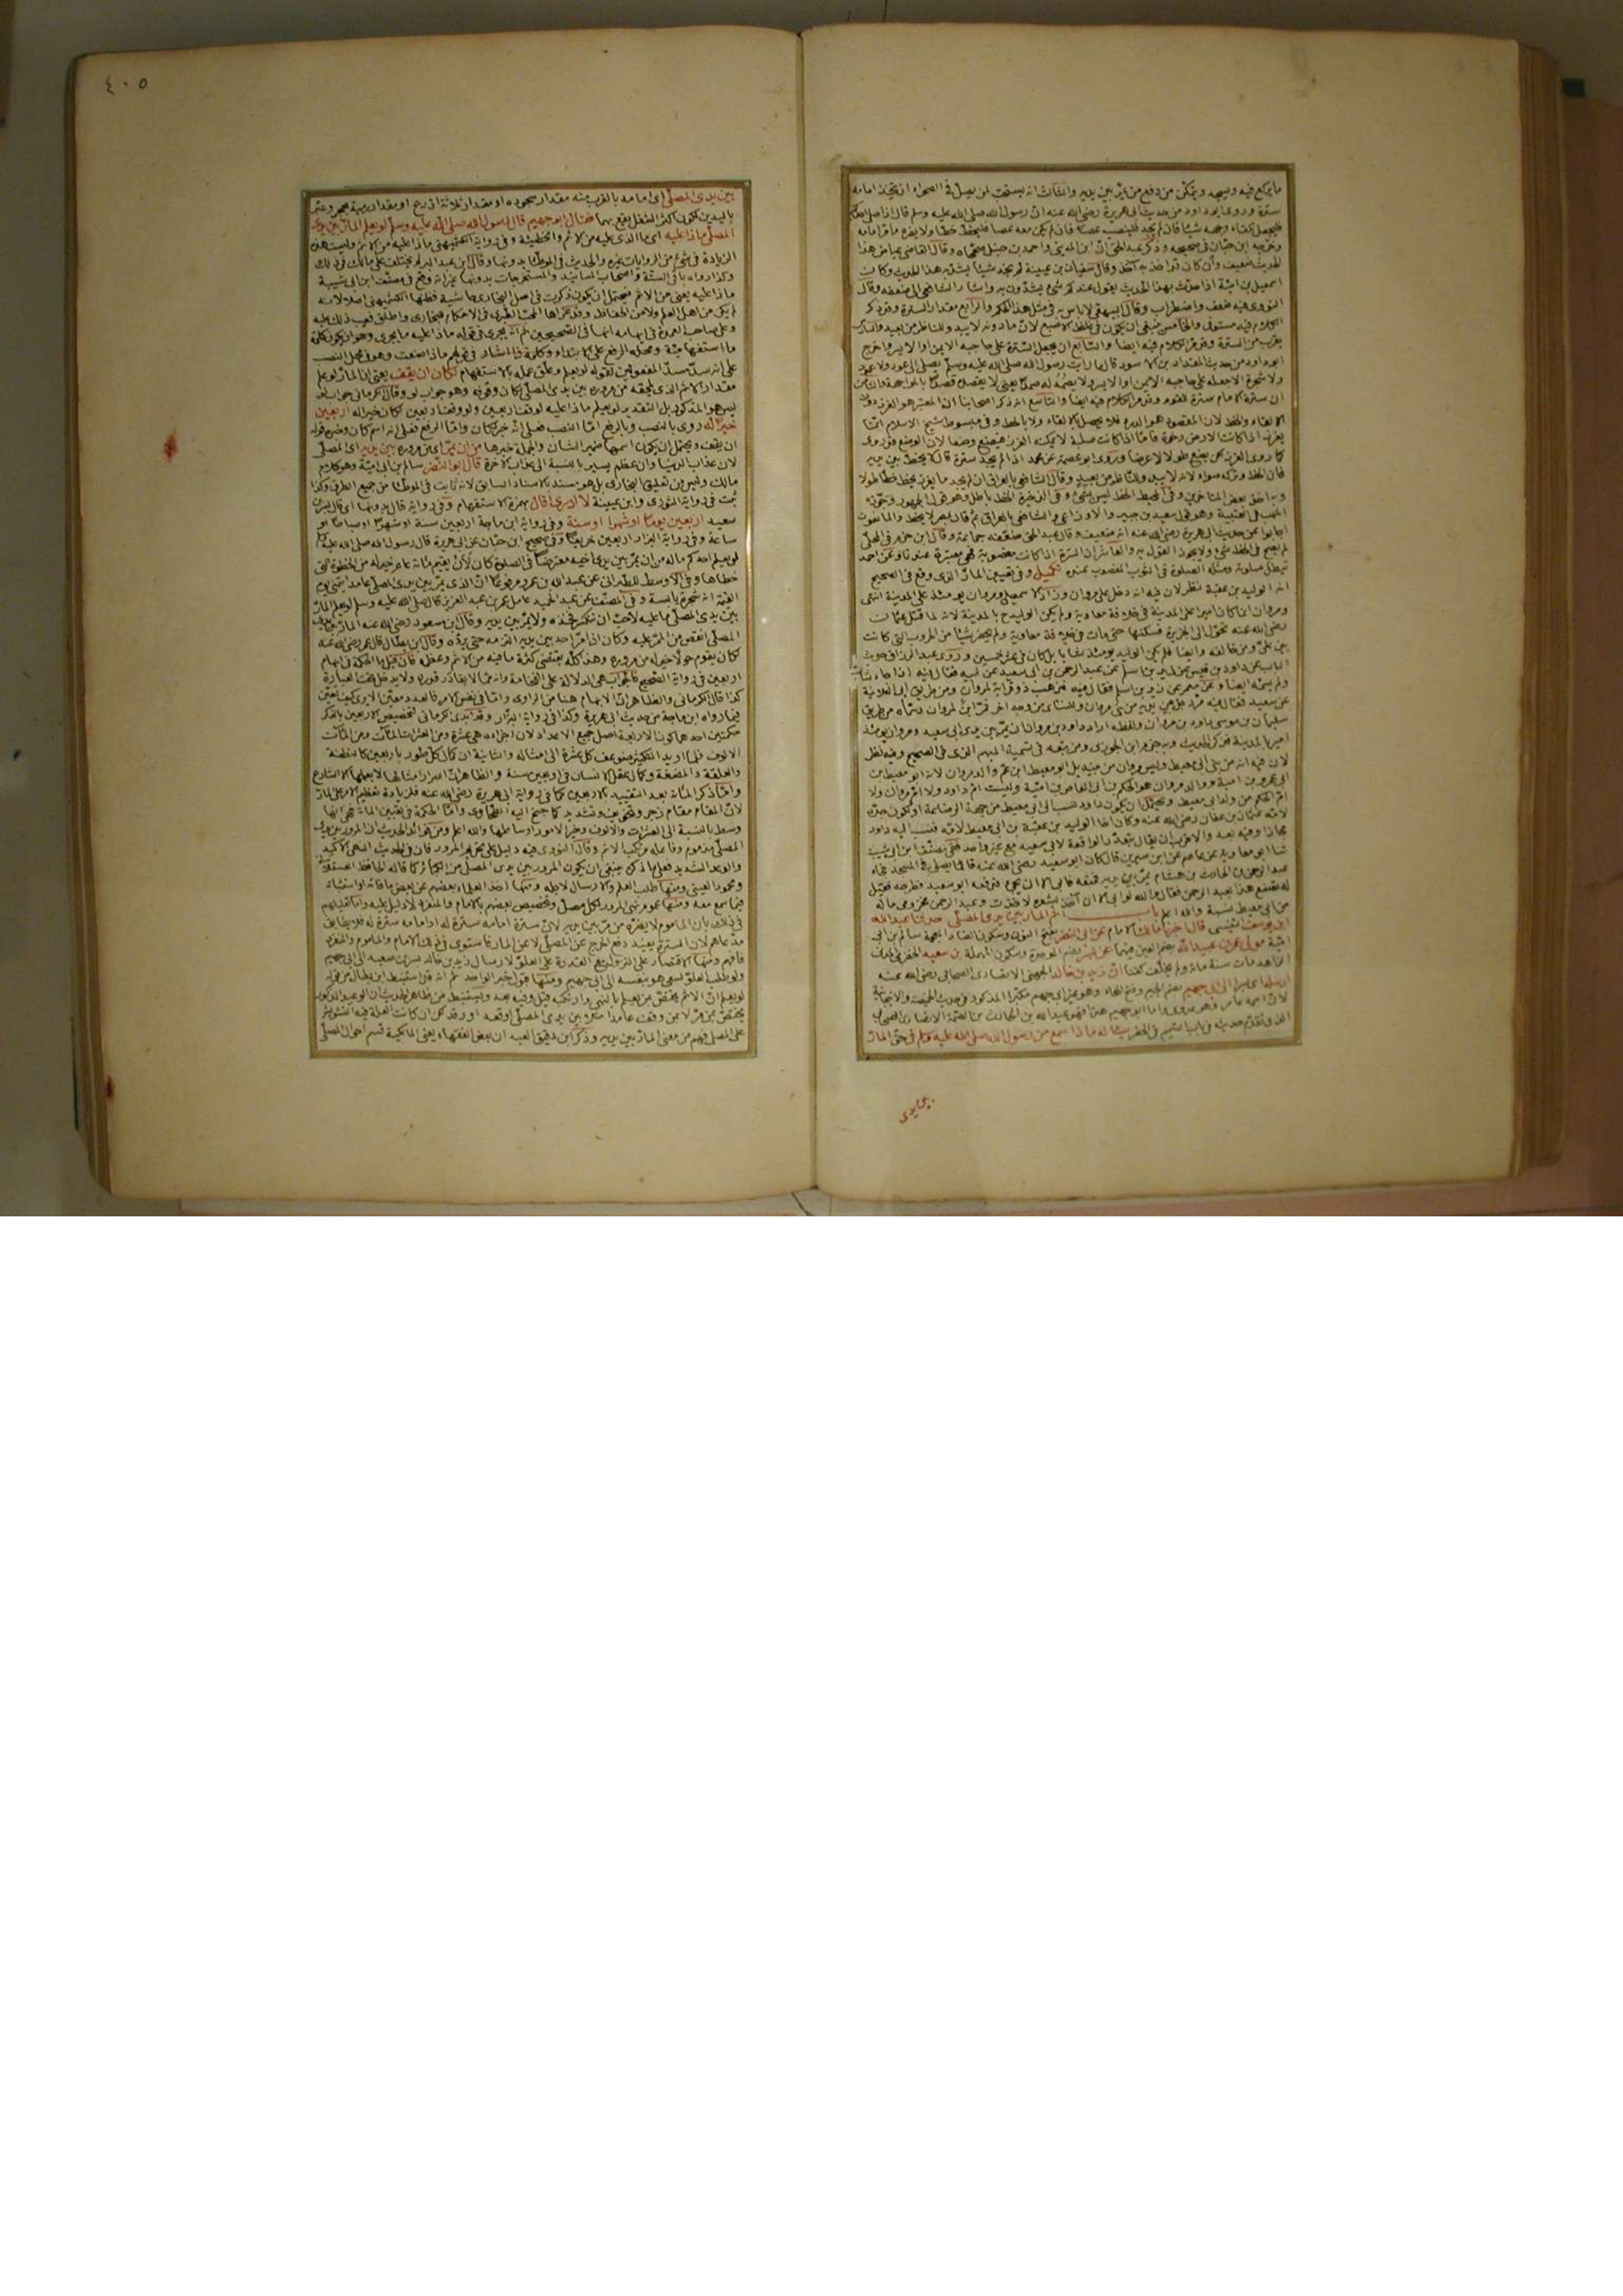 ما يركع فيه ويسجد ويتمكن من دفع من يمر بين يديه والثالث انه يستحب لمن يصلى فى الصحراء ان يتخذ امامه
سترة وروى ابو داود من حديث ابى هريرة رضى الله عنه ان رسول الله صلى الله عليه وسلم قال اذا صلى احدكم
فليجعل تلقاء وجهه شيئا فان لم يجد فلينصب عصا فان لم يكن معه عصا فليخطط خطا ولا يضره ما مر امامه
وخرجه ابن حبان فى صحيحه وذكر عبد الحق ان ابن المدينى واحمد بن حنبل صححاه وقال القاضى عياض هذا
الحديث ضعيف وان كان قد اخذ به احمد وقال سفيان بن عيينة لم نجد شيئا نشد به هذا الحديث وكان
اسمعيل بن امية اذا حدث بهذا الحديث يقول عندكم شئ تشدون به واشار الشافعى الى ضعفه وقال
النووى فيه ضعف واضطراب وقال البيهقى لا باس به فى مثل هذا الحكم والرابع مقدار السترة وقد ذكر
الكلام فيه مستوفى والخامس ينبغى ان يكون فى غلظ الاصبع لان ما دونه لا يبدو للناظر من بعيد والسادس
يقرب من السترة وقد مر الكلام فيه ايضا والسابع ان يجعل السترة على حاجبه الايمن او الايسر واخرج
ابو داود من حديث المقداد بن الاسود قال ما رايت رسول الله صلى الله عليه وسلم يصلى الى عود ولا عمود
ولا شجرة الا جعله على حاجبه الايمن او الايسر ولا يصمد له صمدا يعنى لا يقصده قصدا بالمواجهة والثامن
ان سترة الامام سترة للقوم وقد مر الكلام فيه ايضا والتاسع انه ذكر اصحابنا ان المعتبر هو الغرز دون
الالقاء والخط لان المقصود هو الدرء فلا يحصل بالالقاء ولا بالخط وفى مبسوط شيخ الاسلام انما
يغرز اذا كانت الارض رخوة فاما اذا كانت صلبة لا يمكنه الغرز فيضع وضعا لان الوضع قد روى
كما روى الغرز لكن يضع طولا لا عرضا وروى ابو عصمة عن محمد اذا لم يجد سترة قال لا يخط بين يديه
فان الخط وتركه سواء لانه لا يبدو للناظر من بعيد وقال الشافعى بالعراق ان لم يجد ما يغرز يخط خطا طولا
وبه اخذ بعض المتاخرين وفى المحيط الخط ليس بشئ وفى الذخيرة الخط باطل وهو قول الجمهور وجوزه
اشهب فى العتبية وهو قول سعيد بن جبير والاوزاعى والشافعى بالعراق ثم قال بمصر لا يخط والمانعون
اجابوا عن حديث ابى هريرة رضى الله عنه انه ضعيف وقال عبد الحق ضعفه جماعة وقال ابن حزم فى المحلى
لم يصح فى الخط شئ ولا يجوز القول به والعاشر ان السترة اذا كانت مغصوبة فهى معتبرة عندنا وعن احمد
تبطل صلوته ومثله الصلوة فى الثوب المغصوب عنده تكميل وفى تعيين المار الذى وقع فى الصحيح
انه الوليد بن عقبة نظر لان فيه انه دخل على مروان وزاد الاسمعيلى ومروان يومئذ على المدينة انتهى
ومروان انما كان اميرا على المدينة فى خلافة معاوية ولم يكن الوليد ح بالمدينة لانه لما قتل عثمان
رضى الله عنه تحول الى الجزيرة فسكنها حتى مات فى خلافة معاوية ولم يحضر شيئا من الحروب التى كانت
بين على ومن خالفه وايضا فلم يكن الوليد يومئذ شابا بل كان فى عشر خمسين وروى عبد الرزاق حديث
الباب عن داود بن قيس عن زيد بن اسلم عن عبد الرحمن بن ابى سعيد عن ابيه فقال فيه اذا جاء شاب
ولم يسمه ايضا وعن معمر عن زيد بن اسلم فقال فيه فذهب ذو قرابة لمروان ومن طريق ابى العلانية
عن سعيد فقال فيه مر رجل بين يديه من بنى مروان وللنسائى من وجه آخر فمر ابن لمروان وسماه من طريق
سليمان بن موسى داود بن مروان ولفظه اراد داود بن مروان ان يمر بين يدى ابى سعيد ومروان يومئذ
امير المدينة فذكر الحديث وبه جزم ابن الجوزى ومن تبعه فى تسمية المبهم الذى فى الصحيح وفيه نظر
لان فيه انه من بنى ابى معيط وليس مروان من بنيه بل ابو معيط ابن عم والد مروان لانه ابو معيط بن
ابى عمرو بن امية ووالد مروان هو الحكم بن ابى العاص بن امية وليست ام داود ولا ام مروان ولا
ام الحكم من ولد ابى معيط ويحتمل ان يكون داود نسب الى ابى معيط من جهة الرضاعة او لكون جده
لامه عثمان بن عفان رضى الله عنه وكان اخا الوليد بن عقبة بن ابى معيط لامه فنسب اليه داود
مجازا وفيه بعد والاقرب ان يقال بتعدد الواقعة لابى سعيد مع غير واحد ففى مصنف ابن ابى شيبة
ثنا ابو معاوية عن عاصم عن ابن سيرين قال كان ابو سعيد رضى الله عنه قائما يصلى فى المسجد فجاء
عبد الرحمن بن الحارث بن هشام يمر بين يديه فمنعه فابى الا ان يجئ فدفعه ابو سعيد فطرحه فقيل
له تصنع هذا بعبد الرحمن فقال والله لو ابى الا ان آخذ بشعره لاخذت وعبد الرحمن مخزومى ما له
من ابى معيط نسبة والله اعلم باب اثم المار بين يدى المصلى حدثنا عبد الله
ابن يوسف التنيسى قال اخبرنا مالك الامام عن ابى النضر بفتح النون وسكون الضاد المعجمة سالم بن ابى
امية مولى عمر بن عبيد الله بضم العين فيهما عن بسر بضم الموحدة وسكون المهملة بن سعيد الحضرمى المدنى
الزاهد مات سنة مائة ولم يخلف كفنا ان زيد بن خالد الجهنى الانصارى الصحابى رضى الله عنه
ارسله اى بسرا الى ابى جهيم بضم الجيم وفتح الهاء وهو غير ابى جهم مكبرا المذكور فى حديث الخميصة والانبجانية
لان اسمه عامر وهو عدوى واما ابو جهيم هذا فهو عبد الله بن الحارث بن الصمة الانصارى الصحابى
الذى تقدم حديثه فى باب التيمم فى الحضر يسأله ماذا سمع من رسول الله صلى الله عليه وسلم فى حق المار
بين يدى
٤٠٥
بين يدى المصلى اى امامه بالقرب منه مقدار سجوده او مقدار ثلاثة اذرع او مقدار رمية بحجر وعبر
باليدين لكون اكثر الشغل يقع بهما فقال ابو جهيم قال رسول الله صلى الله عليه وسلم لو يعلم المار بين يدى
المصلى ماذا عليه اى ما الذى عليه من الاثم والخطيئة وفى رواية الكشميهنى ماذا عليه من الاثم وليست هذه
الزيادة فى شئ من الروايات غيره والحديث فى الموطا بدونها وقال ابن عبد البر لم يختلف على مالك فى ذلك
وكذا رواه باقى الستة واصحاب المسانيد والمستخرجات بدونها غير انه وقع فى مصنف ابن ابى شيبة
ماذا عليه يعنى من الاثم فيحتمل ان يكون ذكرت فى اصل البخارى حاشية فظنها الكشميهنى اصلا لانه
لم يكن من اهل العلم ولا من الحفاظ وقد عزاها المحب الطبرى فى الاحكام للبخارى واطلق فعيب ذلك عليه
وعلى صاحب العمدة فى ايهامه انها فى الصحيحين
ما استفهامية ومحله الرفع على الابتداء وكلمة ذا اشارة
على انه سد مسد المفعولين لقوله لو يعلم وعلق عمله بالاستفهام لكان ان يقف يعنى ان المار لو علم
مقدار الاثم الذى يلحقه من مروره بين يدى المصلى لكان وقوفه وهو جواب لو وقال الكرمانى جواب لو
ليس هو المذكور بل التقدير لو يعلم ماذا عليه لوقف اربعين ولو وقف اربعين لكان خيرا له اربعين
خيرا له روى بالنصب وبالرفع اما النصب فعلى انه خبر لكان واما الرفع فعلى انه اسم كان وخبره قوله
ان يقف ويحتمل ان يكون اسمها ضمير الشان والجملة خبرها من ان يمر اى من مروره بين يديه اى المصلى
لان عذاب الدنيا وان عظم يسير بالنسبة الى عذاب الاخرة قال ابو النضر سالم بن ابى امية وهو كلام
مالك وليس من تعليق البخارى بل هو مسند بالاسناد السابق لانه ثابت فى الموطا من جميع الطرق وكذا
ثبت فى رواية الثورى وابن عيينة لا ادرى اقال بهمزة الاستفهام وفى رواية قال بدونها اى قال بسر بن
سعيد اربعين يوما او شهرا او سنة وفى رواية ابن ماجة اربعين سنة او شهرا او صباحا او
ساعة وفى رواية البزار اربعين خريفا وفى صحيح ابن حبان عن ابى هريرة قال رسول الله صلى الله عليه وسلم
لو يعلم احدكم ما له من ان يمر بين يدى اخيه معترضا فى الصلوة كان لأن يقيم مائة عام خير له من الخطوة التى
خطاها وفى الاوسط للطبرانى عن عبد الله بن عمرو مرفوعا ان الذى يمر بين يدى المصلى عامدا يتمنى يوم
القيمة انه شجرة يابسة وفى المصنف عن عبد الحميد عامل عمر بن عبد العزيز قال صلى الله عليه وسلم لو يعلم المار
بين يدى المصلى ما عليه لاحب ان تنكسر فخذه ولا يمر بين يديه وقال ابن مسعود رضى الله عنه المار بين يدى
المصلى انقص من الممر عليه وكان اذا مر احد بين يديه التزمه حتى يرده وقال ابن بطال قال عمر رضى الله عنه
لكان يقوم حولا خير له من مروره وهذا كله يقتضى كثرة ما فيه من الاثم وعظمه فان قيل ما الحكمة فى ابهام
اربعين فى رواية الصحيح فالجواب هى الدلالة على الفخامة وانه مما لا يقادر قدره ولا يدخل تحت العبارة
كذا قال الكرمانى والظاهر ان الابهام هنا من الراوى واما فى نفس الامر فالعدد معين الا يرى كيف تعين
فيما رواه ابن ماجة من حديث ابى هريرة وكذا فى رواية البزار وقد ابدى الكرمانى لتخصيص الاربعين بالذكر
حكمتين احدهما كون الاربعة اصل جميع الاعداد لان اجزاءه هى عشرة ومن العشرات المآت ومن المآت
الالوف فلما اريد التكثير ضوعف كل عشرة الى امثاله والثانية ان كمال كل طور باربعين كالنطفة
والعلقة والمضغة وكمال عقل الانسان فى اربعين سنة والظاهر ان اسرار امثالها لا يعلمها الا الشارع
واما ذكر المائة بعد التقييد بالاربعين كما فى رواية ابى هريرة رضى الله عنه فلزيادة تعظيم الامر على المار
لان المقام مقام زجر وتخويف وتشديد كما جنح اليه الطحاوى واما الحكمة فى تعيين المائة فهى انها
وسط بالنسبة الى العشرات والالوف وخير الامور اوساطها والله اعلم ومن فوائد الحديث ان المرور بين يدى
المصلى مذموم وفاعله مرتكب الاثم وقال النووى فيه دليل على تحريم المرور فان فى الحديث النهى الاكيد
والوعيد الشديد فعلى ما ذكره ينبغى ان يكون المرور بين يدى المصلى من الكبائر كذا قاله الحافظ العسقلانى
ومحمود العينى ومنها طلب العلم والارسال لاجله ومنها اخذ العلماء بعضهم عن بعض ما فاته او استثباته
فيما سمع معه ومنها عموم نهى المرور لكل مصل وتخصيص بعضهم بالامام والمنفرد لا دليل عليه واما تعليلهم
فى ذلك بان الماموم لا يضره من مر بين يديه لان سترة امامه سترة له او امامه سترة له فلا يطابق
مدعاهم لان السترة تفيد دفع الحرج عن المصلى لا عن المار فاستوى فى ذلك الامام والماموم والمنفرد
فافهم ومنها الاقتصار على النزول مع القدرة على العلو لارسال زيد بن خالد بسر بن سعيد الى ابى جهيم
ولو طلب العلو لسعى هو بنفسه الى ابى جهيم ومنها قبول خبر الواحد ثم انه قد استنبط ابن بطال من قوله
لو يعلم ان الاثم يختص من يعلم بالنهى وارتكبه قيل وفيه بعد ويستنبط من ظاهر الحديث ان الوعيد المذكور
يختص بمن مر لا بمن وقف عامدا مثلا بين يدى المصلى او قعد او رقد لكن ان كانت العلة فيه التشويش
على المصلى فهم من معنى المار بين يديه وذكر ابن دقيق العيد ان بعض الفقهاء يعنى المالكية قسم احوال المصلى